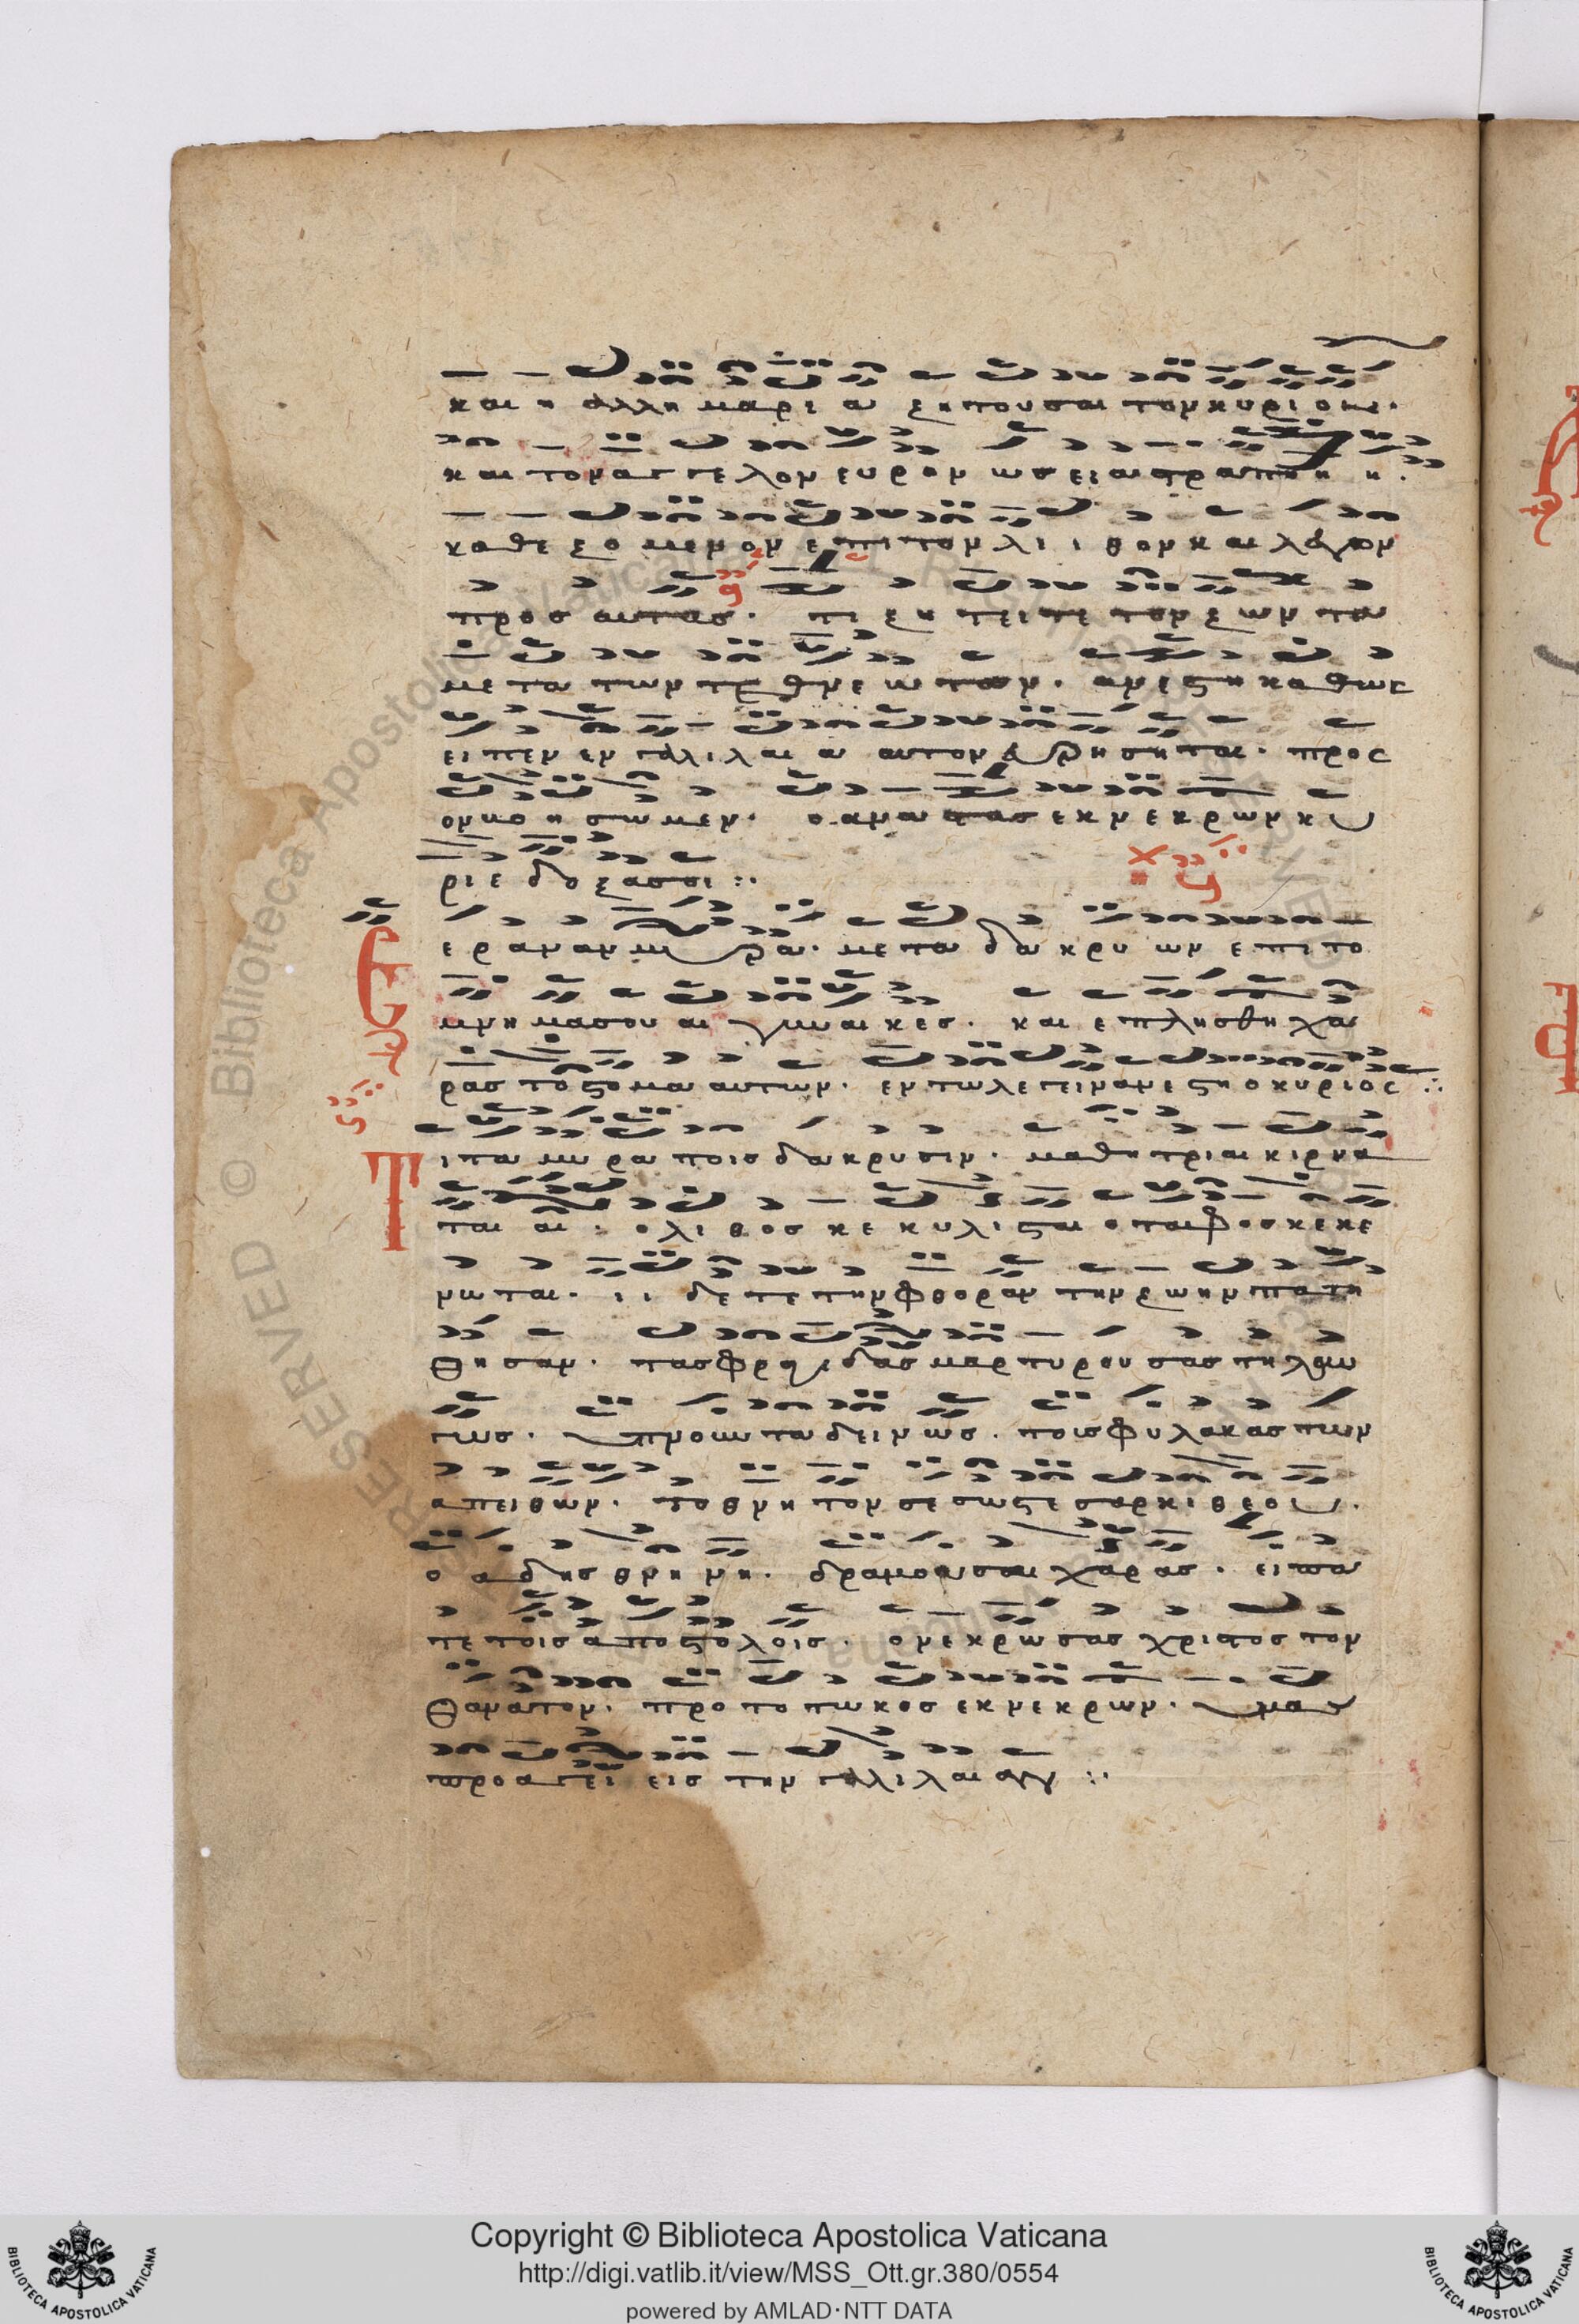 και η αλλη μαρι α ζητουσαι τον κυρι ον·
και τον αγγελον ευρον ως ει αστραπην η·
καθεζομενον επι τον λι ι θον και λεγων
προς αυτας· τι ζη τειτε τον ζων τα
με τα των τεθνεω των· ανεστη καθως
ειπεν εν γαλιλαι α αυτον ευρησηται· προς
ον βοησωμεν· ο αναστας εκ νεκρων κυ
ριε δοξα σοι :·
Ερανον μυρα· μετα δακρυ ων επι το
μνημα σου αι γυναικες· και επλησθη χα
ρας το στομα αυτων· εν τω λεγειν ανεστη ο κυριος :·
Τι τα μυρα τοις δακρυσιν· μαθητριαι κιρνα
ται αι· ο λιθος κεκυλισται ο ταφος κεκε
νωται· ι ι δετε την φθοραν την ζωην πατη
θησαν· τας φραγιδας μαρτυρουσας τηλαυ
γως· υπνουντα δεινως· τους φυλακας των
απειθων· το θνητον σεσωστε σαρκι θεου·
ο αδης θρηνη· δραμουσαι χαρας· ειπα
τε τοις αποστολοις· ο νεκρωσας χριστος τον
θανατον· πρωτοτωκος εκ νεκρων· υμας
προαγει εις την γαλιλαιαν :·
Copyright © Biblioteca Apostolica Vaticana
http://digi.vatlib.it/view/MSS_Ott.gr.380/0554
powered by AMLAD·NTT DATA
BIBLIOTECA APOSTOLICA VATICANA
BIBLIOTECA APOSTOLICA VATICANA